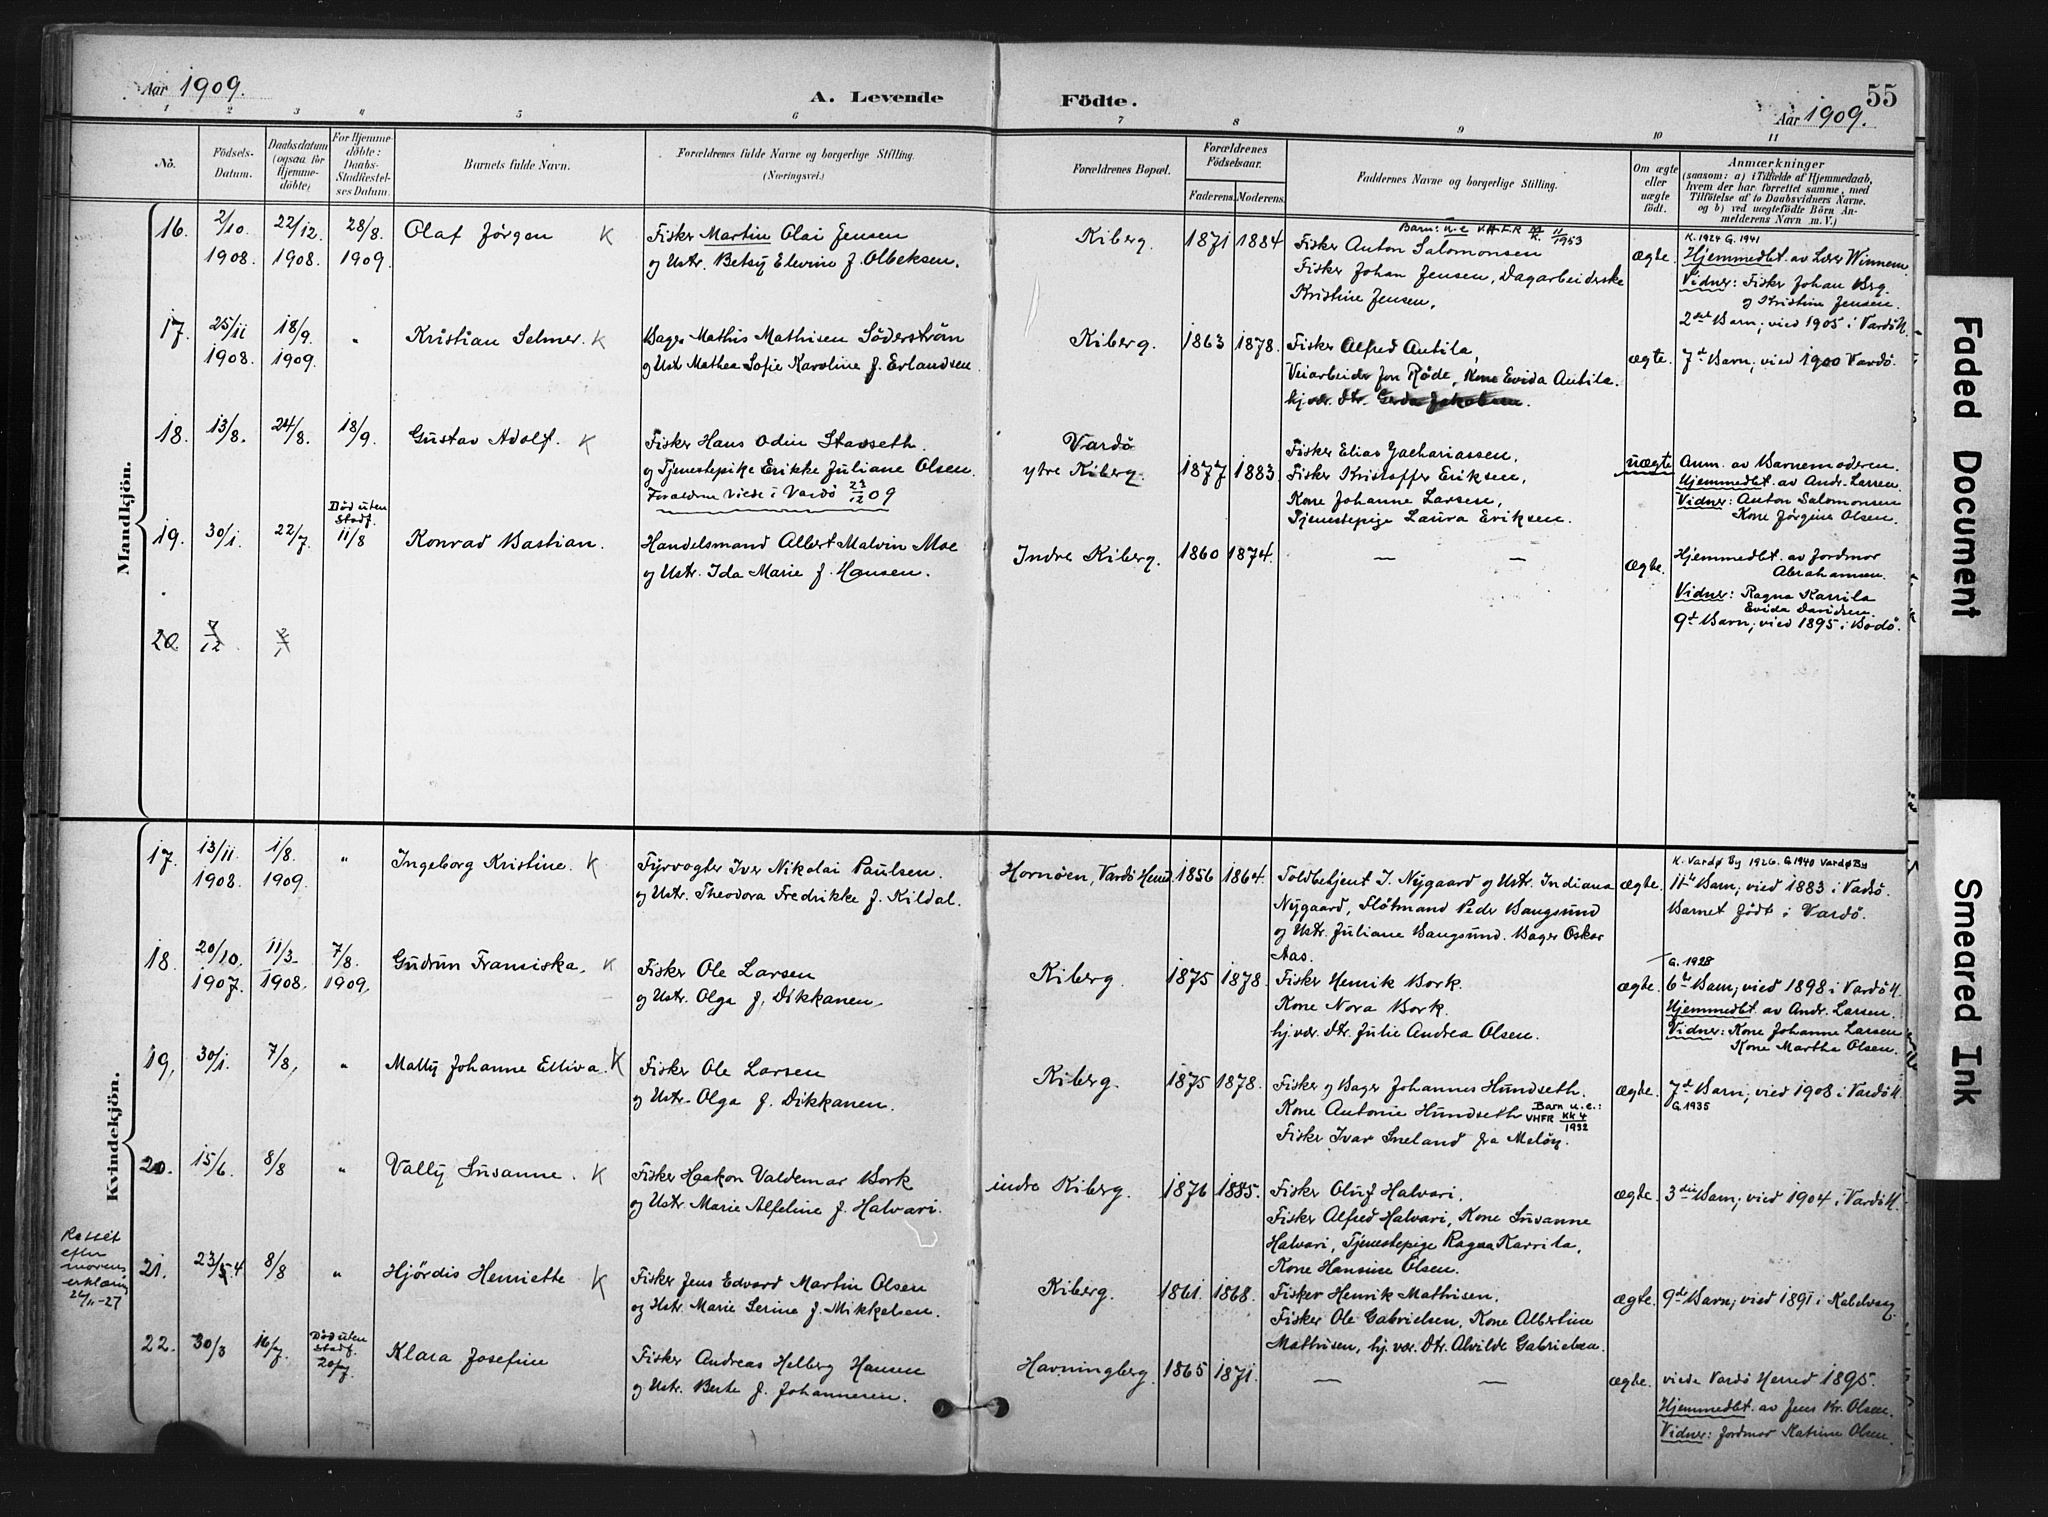 Aar 1909.
A. Levende Födte.
55
Aar 1909.
1 2 3 4 5 6 7 8 9 10 11
No.
Födsels-Datum.
Daabsdatum (ogsaa for Hjemme-döbte)
For Hjemme-döbte: Daabs-Stadfæstel-ses Datum.
Barnets fulde Navn.
Forældrenes fulde Navne og borgerlige Stilling.
(Næringsvei.)
Forældrenes Bopæl.
Forældrenes Födselsaar.
Faderens. Moderens.
Faddernes Navne og borgerlige Stilling.
Om ægte eller uægte födt.
Anmærkninger
(saasom: a) i Tilfælde af Hjemmedaab,
hvem der har forrettet samme, med
Tilföielse af to Daabsvidners Navne.
og b) ved uægtefödte Börn An-
melderens Navn m. V.)
Mandkjön.
16. 2/10 1908. 22/12 1908. 28/8 1909. Olaf Jörgen K
Fisker Martin Olai Jensen
og Ustr. Betsy Elevine f. Olbeksen.
Kiberg. 1871 1884
Barn: u.e V.H.F.R 11/1953
Fisker Anton Salomonsen
Fisker Johan Jensen, Dagarbeiderske
Kristine Jensen,
ægte.
K. 1924 G. 1941
Hjemmedbt. av Lærer Winnem.
Vidner: Fisker Johan Brg.
og Kristine Jensen.
2det Barn; vied 1905 i Vardö H.
17. 25/11 1908. 18/9 1909. " Kristian Selmer. K
Bager Mathis Mathisen Söderström
og Ustr Mathea Sofie Karoline f. Erlandsen.
Kiberg. 1863 1878.
Fisker Alfred Antila,
Veiarbeider Jon Röde, Kone Evida Antila.
hj.vær. Dtr. Gerda Jakobsen.
ægte. 7d Barn; vied 1900 Vardö.
18. 13/8. 24/8. 18/9. Gustav Adolf. K
Fisker Hans Odin Stavseth
og Tjenestepike Erikke Juliane Olsen.
Foraldrne viede i Vardö 23/12 09
Vardö
ytre Kiberg. 1877 1883.
Fisker Elias Zachariassen,
Fisker Kristoffer Eriksen,
Kone Johanne Larsen,
Tjenestepige Laura Eriksen.
uægte Anm. av Barnemoderen.
Hjemmedbt. av Andr. Larsen.
Vidner: Anton Salomonsen
Kone Jörgine Olsen.
19. 30/1. 22/7. Död uten Stadf. 11/8 Konrad Bastian.
Handelsmand Albert Malvin Moe
og Ustr. Ida Marie f. Hansen.
Indre Kiberg. 1860 1874. — —
ægte.
Hjemmedbt. av Jordmor
Abrahamsen.
Vidner: Ragna Karrila
Evida Davidsen.
9d Barn; vied 1895 i Bodö.
20 7/12 2/1
Kvindekjön.
17. 13/11 1908. 1/8 1909. " Ingeborg Kristine. K
Fyrvogter Iver Nikolai Paulsen.
og Ustr. Theodora Fredrikke f. Kildal.
Hornöen, Vardö Herred. 1856 1864.
Toldbetjent J. Nygaard og Ustr. Indiana
Nygaard, Flötmand Peder Bangsund
og Ustr. Juliane Bangsund. Bager Oskar
Aas.
ægte.
K. Vardø By 1926. G. 1940 Vardø By
11te Barn; vied 1883 i Vadsö.
Barnet födt i Vardö.
18. 20/10. 1907. 11/3 1908. 7/8. 1909. Gudrun Fransiska. K
Fisker Ole Larsen
og Ustr. Olga f. Dikkanen.
Kiberg. 1875 1878.
Fisker Henrik Bork.
Kone Nora Bork.
hj.vær. Dtr. Julie Andrea Olsen.
ægte.
G. 1928
6te Barn; vied 1898 i Vardö H.
Hjemmedbt av Andr. Larsen.
Vidner: Kone Johanne Larsen
Kone Martha Olsen.
19. 30/1. 7/8. " Mally Johanne Elliva. K
Fisker Ole Larsen
og Ustr. Olga f. Dikkanen.
Kiberg. 1875 1878.
Fisker og Bager Johannes Hundseth.
Kone Antonie Hundseth
Barn u.e.: VHFR KK 4/1932
Fisker Ivar Sneland fra Melöy.
ægte. 7d Barn; vied 1908 i Vardö H.
G. 1935
20. 15/6. 8/8 " Vally Susanne. K
Fisker Haakon Valdemar Bork
og Ustr. Marie Alfeline f. Halvari.
indre Kiberg. 1876 1885.
Fisker Oluf Halvari.
Fisker Alfred Halvari, Kone Susanne
Halvari, Tjenestepige Ragna Karrila,
Kone Hansine Olsen.
ægte. 3die Barn; vied 1904 i Vardö H.
Rettet
efter
morens
erklæring
26/11-27
21. 23/5 4 8/8 " Hjördis Henriette K
Fisker Jens Edvard Martin Olsen
og Ustr. Marie Serine f. Mikkelsen.
Kiberg. 1861 1868.
Fisker Henrik Mathisen.
Fisker Ole Gabrielsen, Kone Albertine
Mathisen, hj. vær. Dtr. Alvilde Gabrielsen.
ægte. 9de Barn; vied 1891 i Kabelvaag.
22. 30/3 16/7. Död uten Stadf. 20/7 Klara Josefine
Fisker Andreas Helberg Hansen
og Ustr. Berte f. Johannesen.
Havningberg. 1865 1871. — —
ægte. viede Vardö Herred 1895.
Hjemmedbt. av Jens Kr. Olsen.
Vidner: Jordmor Katrine Olsen.
Faded Document
Smeared Ink